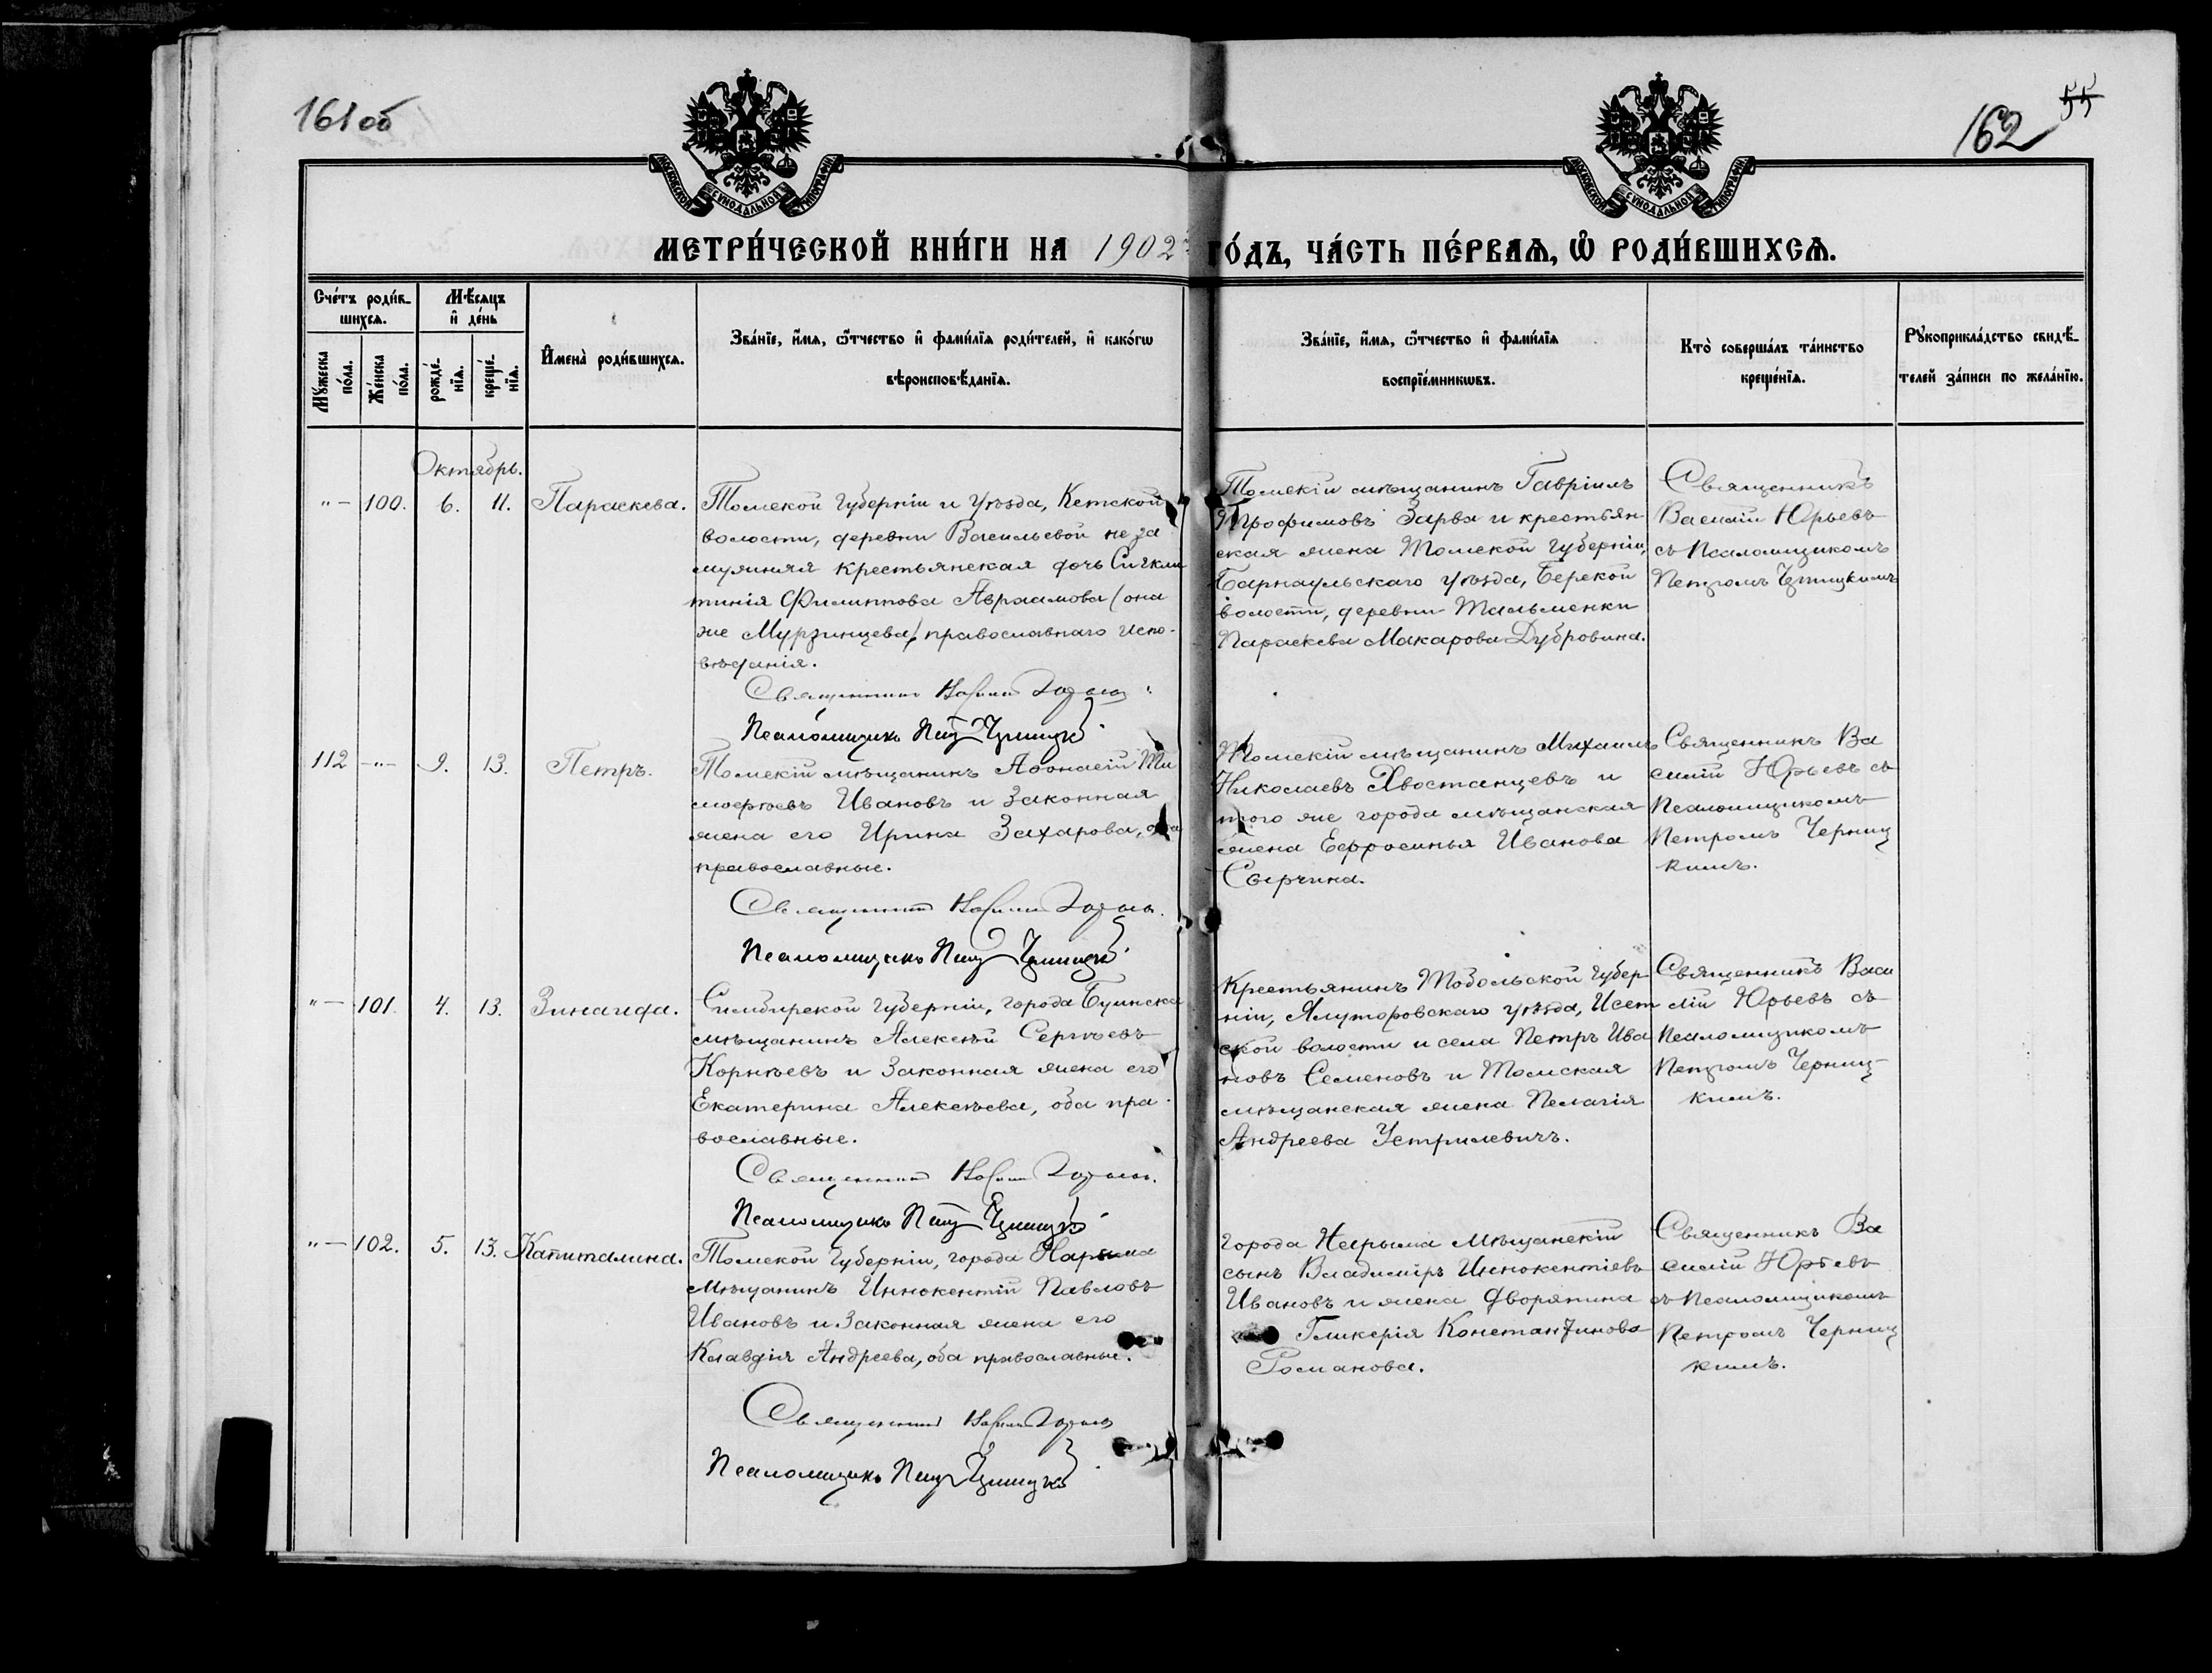 161 об
162
55
МОСКОВСКОЙ СѴНОДАЛЬНОЙ ТИПОГРАФІИ
МОСКОВСКОЙ СѴНОДАЛЬНОЙ ТИПОГРАФІИ
МЕТРИ́ЧЕСКОЙ КНИ́ГИ НА 1902 ГО́ДЪ, ЧА́СТЬ ПЕ́РВАѦ, Ѡ҆ РОДИ́ВШИХСѦ.
Сче́тъ роди́в-
шихсѧ.
Мꙋ́жеска по́ла.
Же́нска по́ла.
Мѣ́сѧцъ
и҆ де́нь
рожде́-
нїѧ.
креще́-
нїѧ.
И҆мена̀ роди́вшихсѧ.
Зва́нїе, и҆́мѧ, ѻ҆́тчество и҆ фами́лїѧ роди́телей, и҆ како́гѡ
вѣроисповѣ́данїѧ.
Зва́нїе, и҆́мѧ, ѻ҆́тчество и҆ фами́лїѧ
воспрїе́мникѡвъ.
Кто̀ соверша́лъ та́инство
креще́нїѧ.
Рꙋкоприкла́дство свидѣ́-
телей за́писи по жела́нїю.
Октябрь.
"— 100. 6. 11. Параскева.
Томской губерніи и уѣзда, Кетской
волости, деревни Васильевой неза
мужняя крестьянская дочь Сигкли
тикія Филиппова Авраамова (она
же Мурзинцева) православнаго испо-
вѣданія.
Священникъ Василій Юрьевъ
Псаломщикъ Петръ Черницкій
Томскій мѣщанинъ Гавріилъ
Трофимовъ Зарва и крестьян-
ская жена Томской губерніи,
Барнаульскаго уѣзда, Берской
волости, деревни Тальменки
Параскева Макарова Дубровина.
Священникъ
Василій Юрьевъ
съ Псаломщикомъ
Петромъ Черницкимъ
112 —"— 9. 13. Петръ.
Томскій мѣщанинъ Аѳонасій Ти
моѳеевъ Ивановъ и законная
жена его Ирина Захарова, оба
православные.
Священникъ Василій Юрьевъ
Псаломщикъ Петръ Черницкій
Томскій мѣщанинъ Михаилъ
Николаевъ Хвостанцевъ и
того же города мѣщанская
жена Ефросинья Иванова
Сырчина.
Священникъ Ва
силій Юрьевъ съ
Псаломщикомъ
Петромъ Черниц
кимъ.
"— 101. 4. 13. Зинаида.
Симбирской губерніи, города Буинска
мѣщанинъ Алексѣй Сергѣевъ
Корнѣевъ и законная жена его
Екатерина Алексѣева, оба пра-
вославные.
Священникъ Василій Юрьевъ
Псаломщикъ Петръ Черницкій
Крестьянинъ Тобольской губер-
ніи, Ялуторовскаго уѣзда, Исет
ской волости и села Петръ Ива
новъ Семеновъ и Томская
мѣщанская жена Пелагія
Андреева Устрилевичъ.
Священникъ Васи
лій Юрьевъ съ
Псаломщикомъ
Петромъ Черниц-
кимъ.
"— 102. 5. 13. Капиталина.
Томской губерніи, города Нарыма
мѣщанинъ Иннокентій Павловъ
Ивановъ и законная жена его
Клавдія Андреева, оба православные.
Священникъ Василій Юрьевъ
Псаломщикъ Петръ Черницкій
города Нарыма мѣщанскій
сынъ Владиміръ Иннокентіевъ
Ивановъ и жена дворянина
Гликерія Константинова
Романова.
Священникъ Ва
силій Юрьевъ
съ Псаломщикомъ
Петромъ Черниц
кимъ.